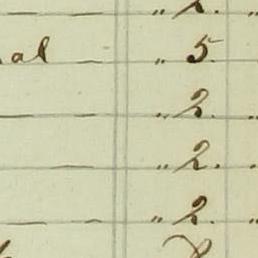 „ 2. „
al — „ 5. „
— „ 2. „
— — „ 2. „
— — „ 2. „